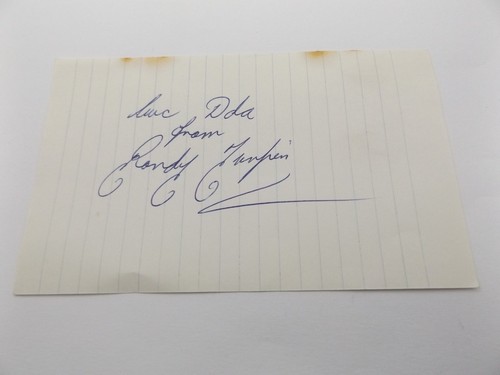 Dda
from
Randy Turpin